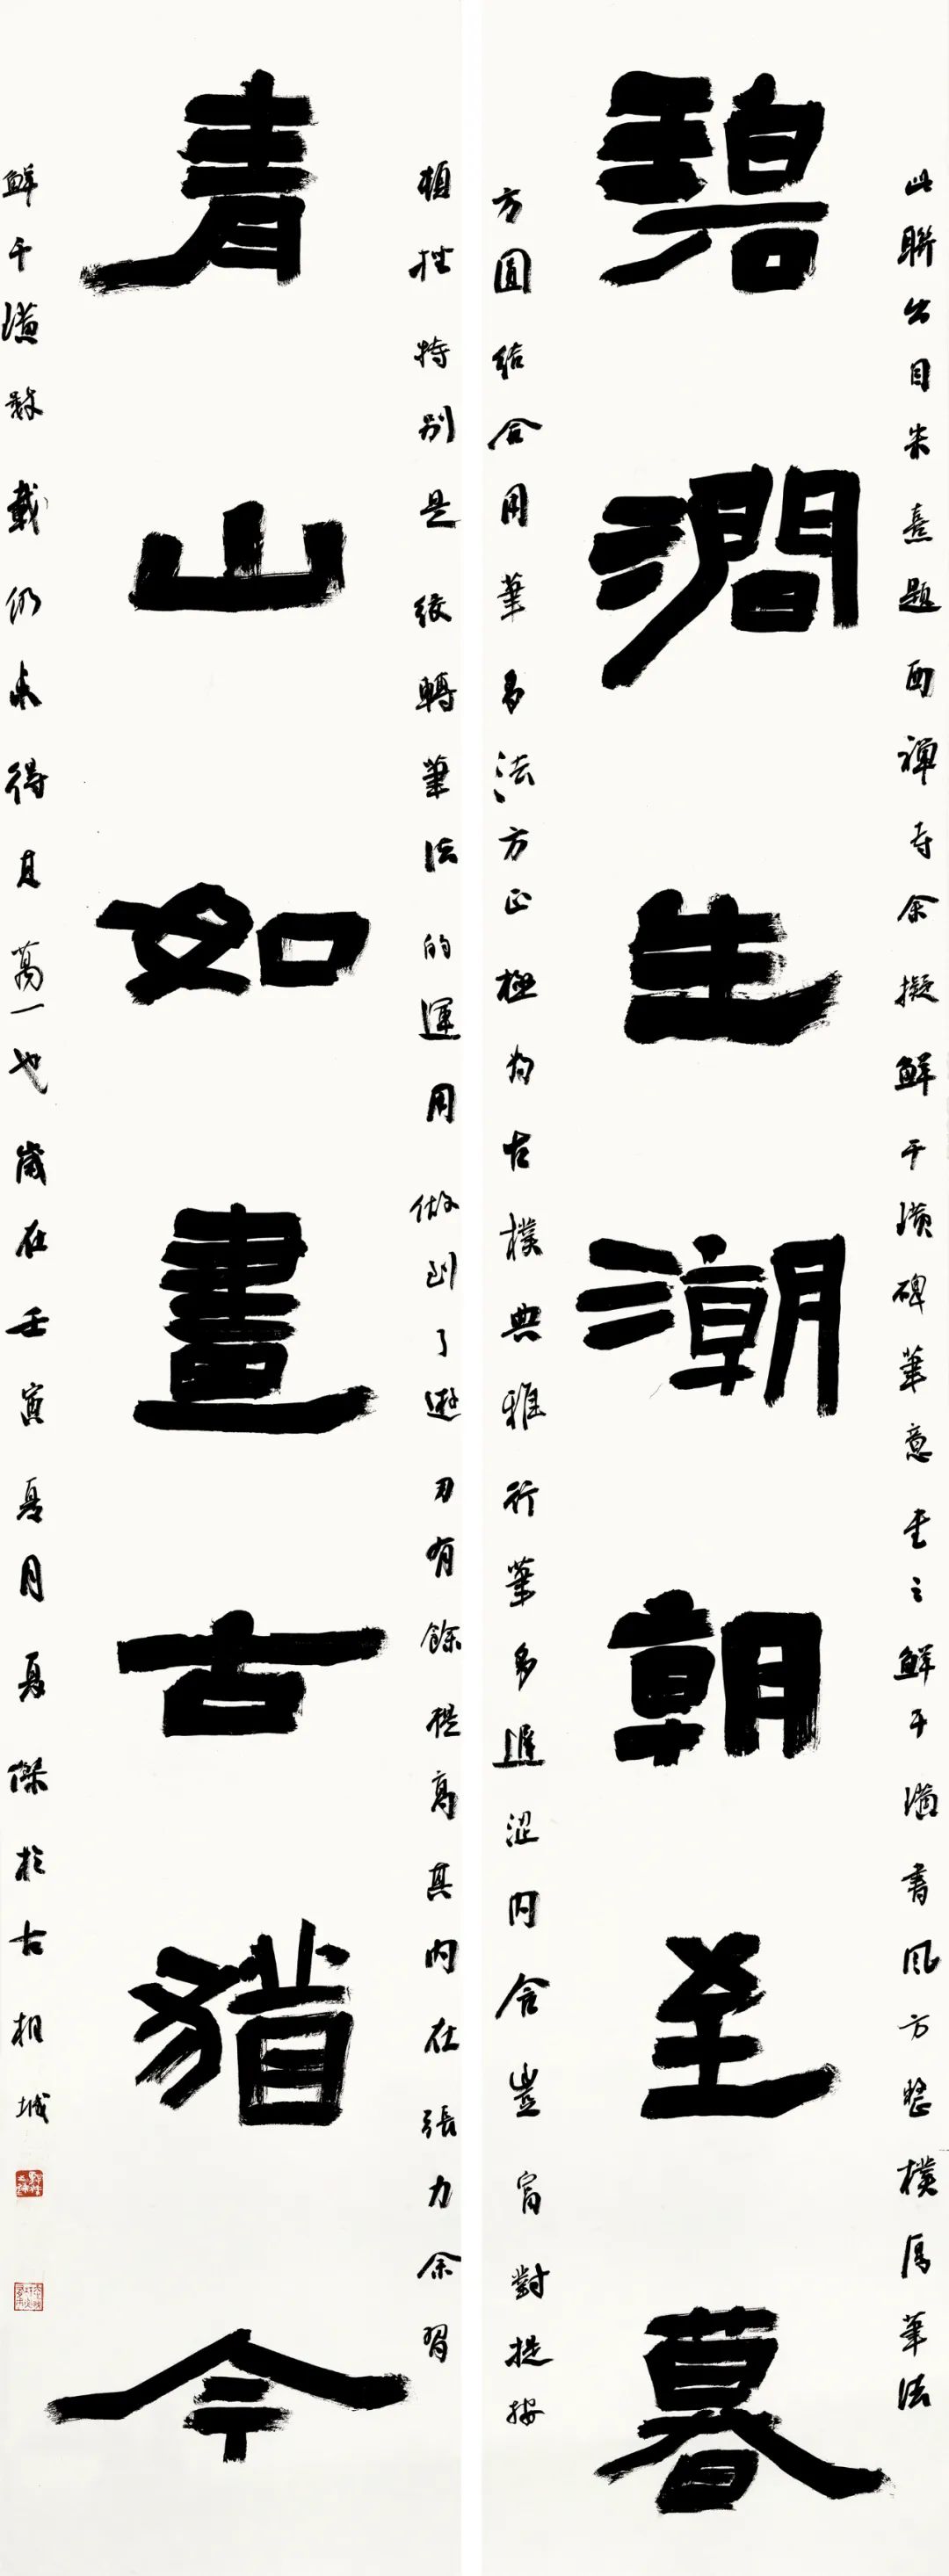 碧澗生潮朝至暮
青山如畫古猶今
此聯出自朱熹題西禪寺余擬鮮于璜碑筆意書之鮮于璜書風方整樸厚筆法
方圓結合用筆多法方正極為古樸典雅行筆多遲澀內含豐富對提按
頓挫特別是絞轉筆法的運用做到了遊刃有餘提高其內在張力余習
鮮于璜數載仍未得其萬一也歲在壬寅夏月夏傑於古相城